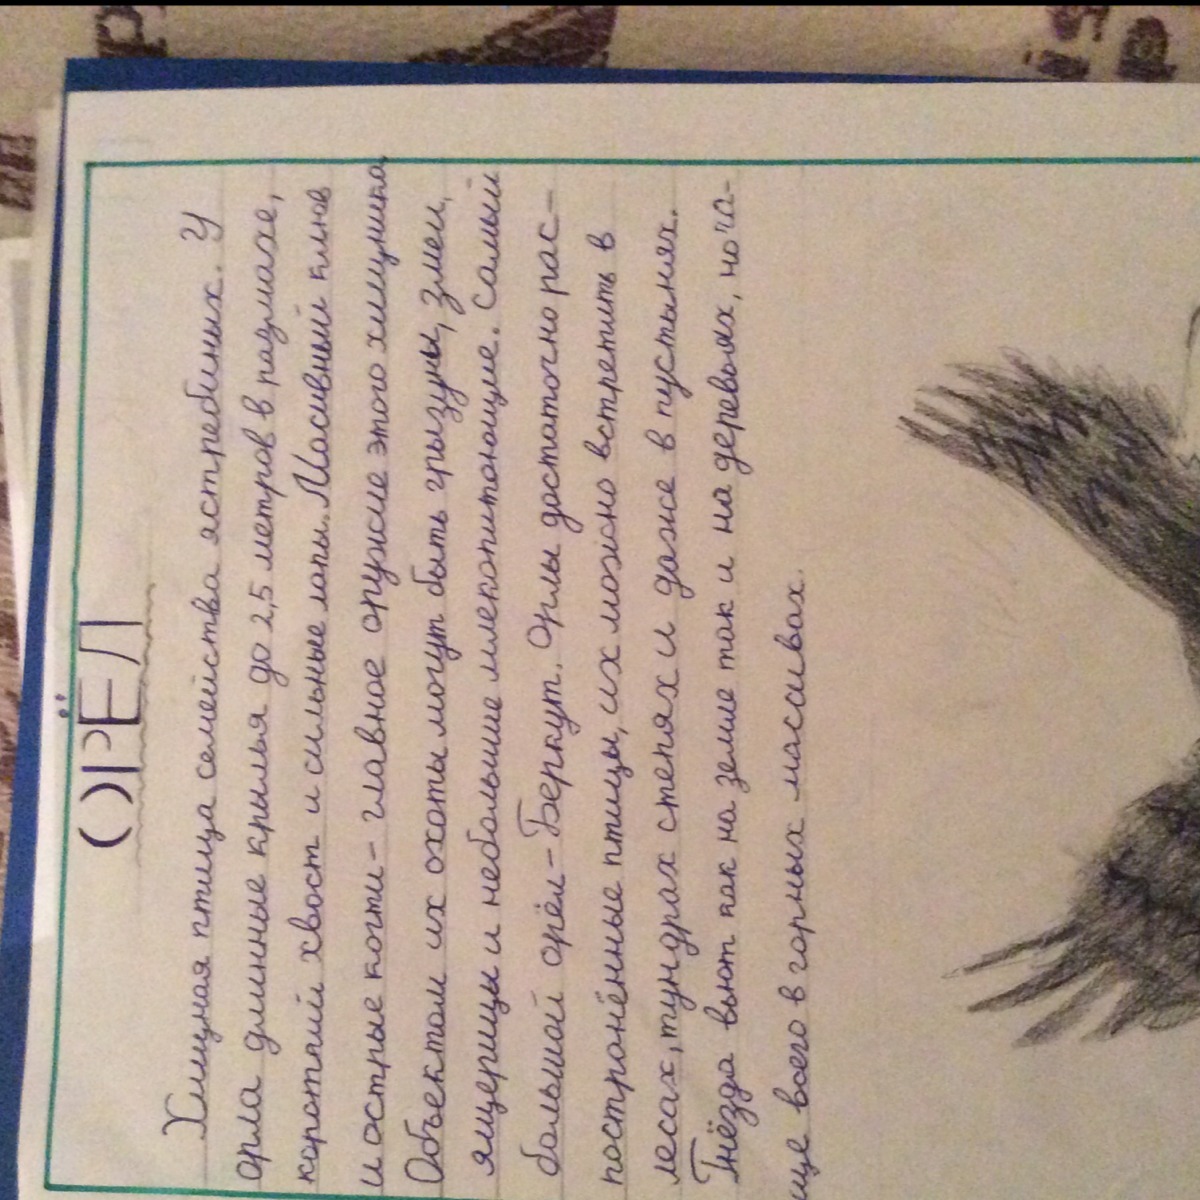 ОРЁЛ
Хищная птица семейства ястребиных. У
орла длинные крылья до 2,5 метров в размахе,
короткий хвост и сильные лапы. Масивный клюв
и острые когти - главное оружие этого хищника.
Объектом их охоты могут быть грызуны, змеи,
ящерицы и небольшие млекопитающие. Самый
большой орёл - Беркут. Орлы достаточно рас-
пострaнённые птицы, их можно встретить в
лесах, тундрах степях и даже в пустынях.
Гнёзда вьют как на земле так и на деревьях, но ча-
ще всего в горных массивах.